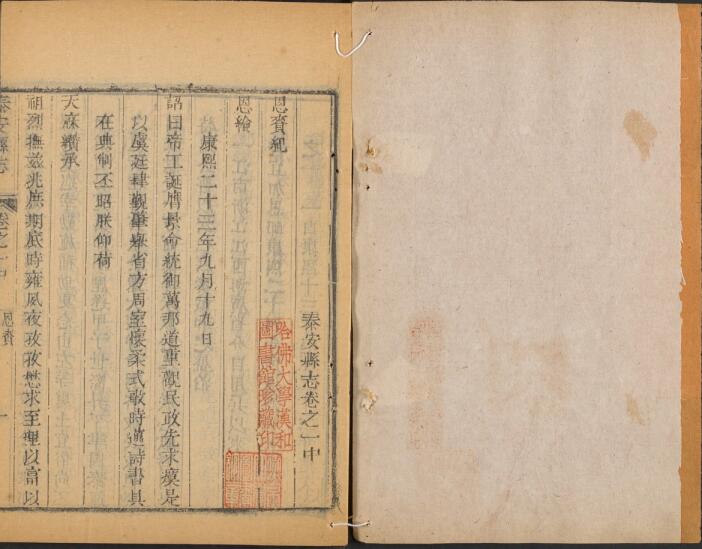 泰安縣志卷之一中
恩賚紀
恩綸
康熙二十三年九月十九日
詔曰帝王誕膺景命統御萬邦道重觀民政先求瘼是
以虞廷肆覲肇舉省方周室懷柔式敘時邁詩書具
在典制丕昭朕仰荷
天庥纘承
祖烈撫茲兆庶期底時雍夙夜孜孜懋求至理以富以
泰安縣志
卷之一中
恩賚
一
哈佛大學漢和
圖書館珍藏印